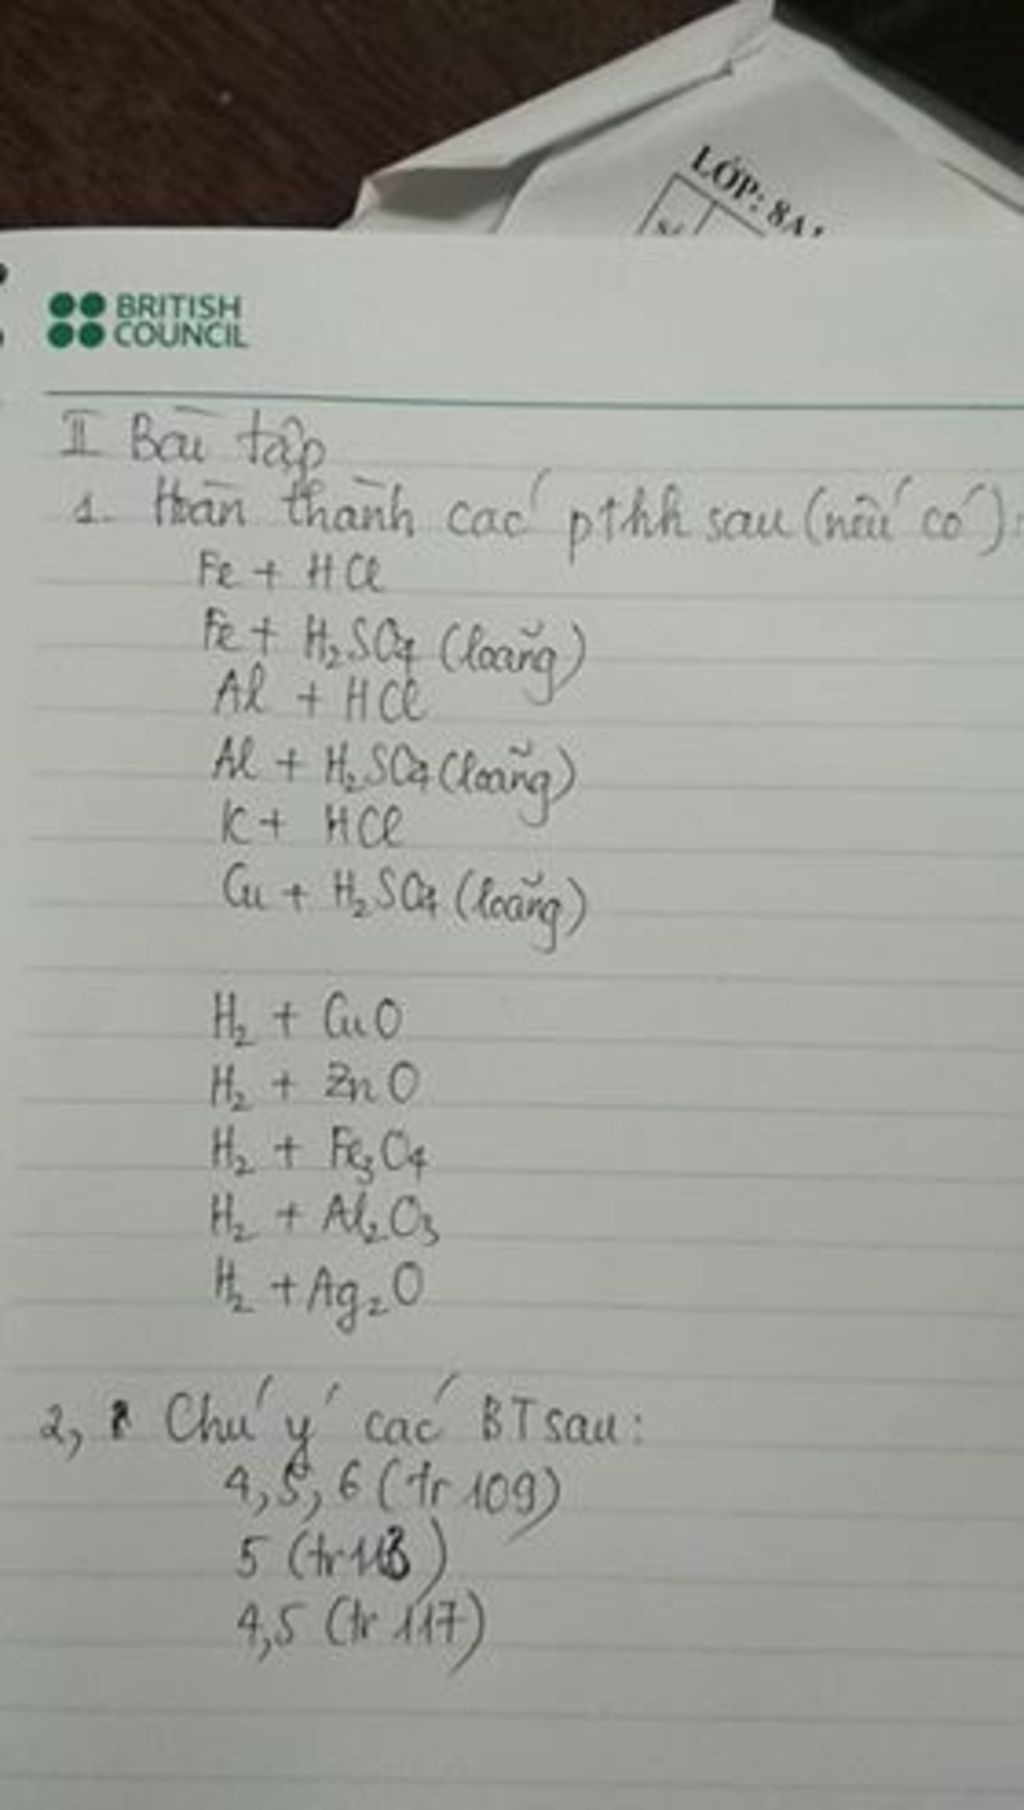 LỚP: 8A1
BRITISH
COUNCIL
II Bài tập
1. Hoàn thành các pthh sau (nếu có):
Fe + HCl
Fe + H₂SO₄ (loãng)
Al + HCl
Al + H₂SO₄ (loãng)
K + HCl
Cu + H₂SO₄ (loãng)
H₂ + CuO
H₂ + ZnO
H₂ + Fe₃O₄
H₂ + Al₂O₃
H₂ + Ag₂O
2, Chú ý các BT sau:
4, 5, 6 (tr 109)
5 (tr 113)
4, 5 (tr 117)